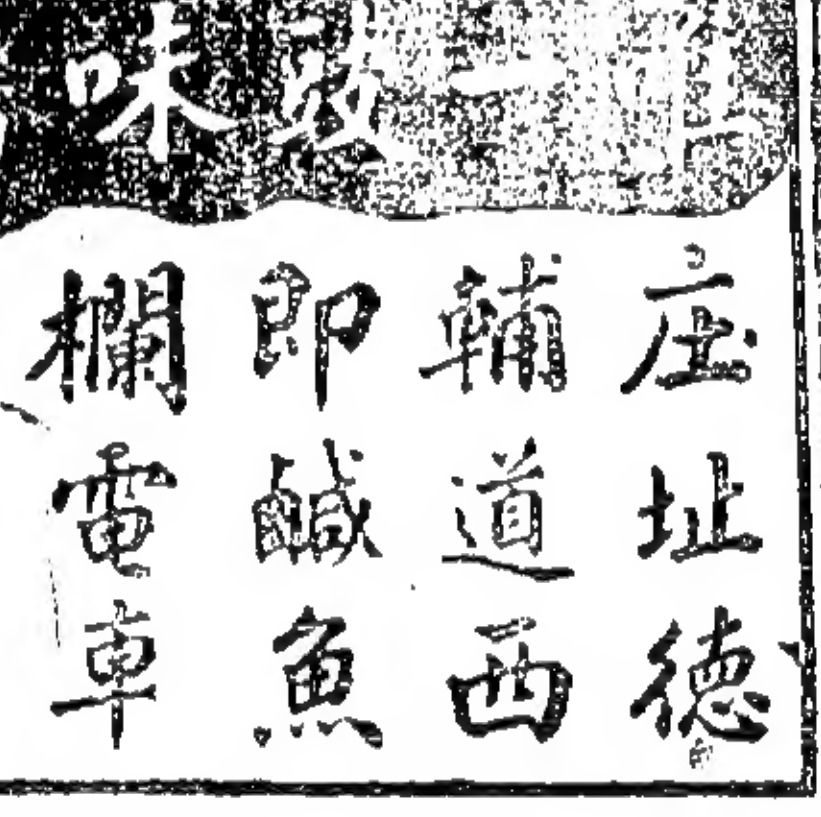 庄址德
輔道西
即鹹魚
欄電車